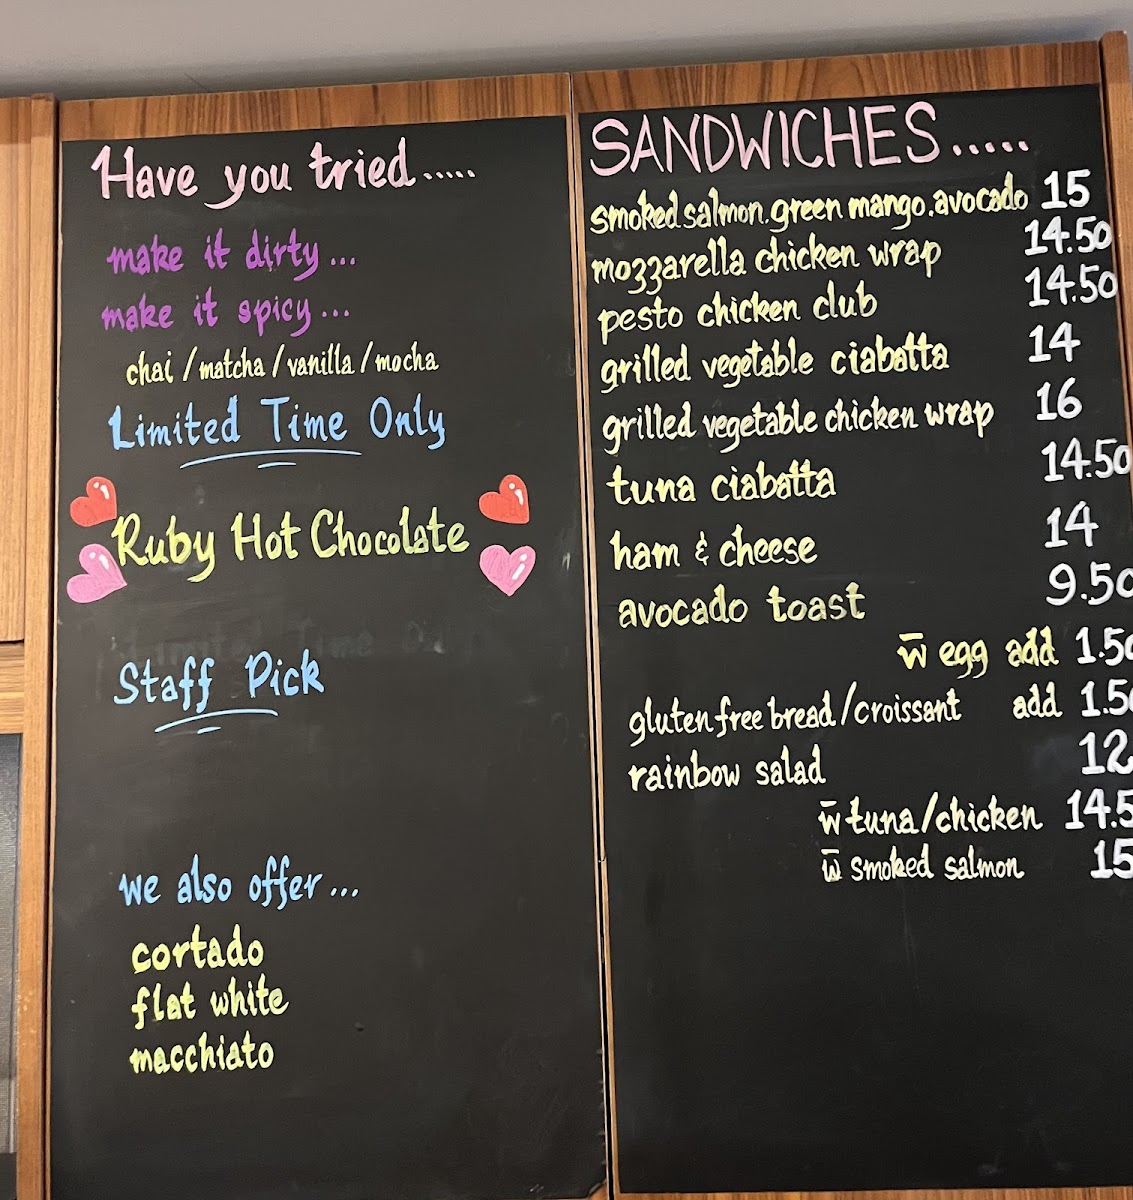 Have you tried.....
make it dirty...
make it spicy...
chai / matcha / vanilla / mocha
Limited Time Only
Ruby Hot Chocolate
Staff Pick
we also offer...
cortado
flat white
macchiato
SANDWICHES.....
smoked salmon.green mango.avocado 15
mozzarella chicken wrap 14.50
pesto chicken club 14.50
grilled vegetable ciabatta 14
grilled vegetable chicken wrap 16
tuna ciabatta 14.50
ham & cheese 14
avocado toast 9.50
w̄ egg add 1.50
gluten free bread/croissant add 1.50
rainbow salad 12
w̄ tuna/chicken 14.5
w̄ smoked salmon 15